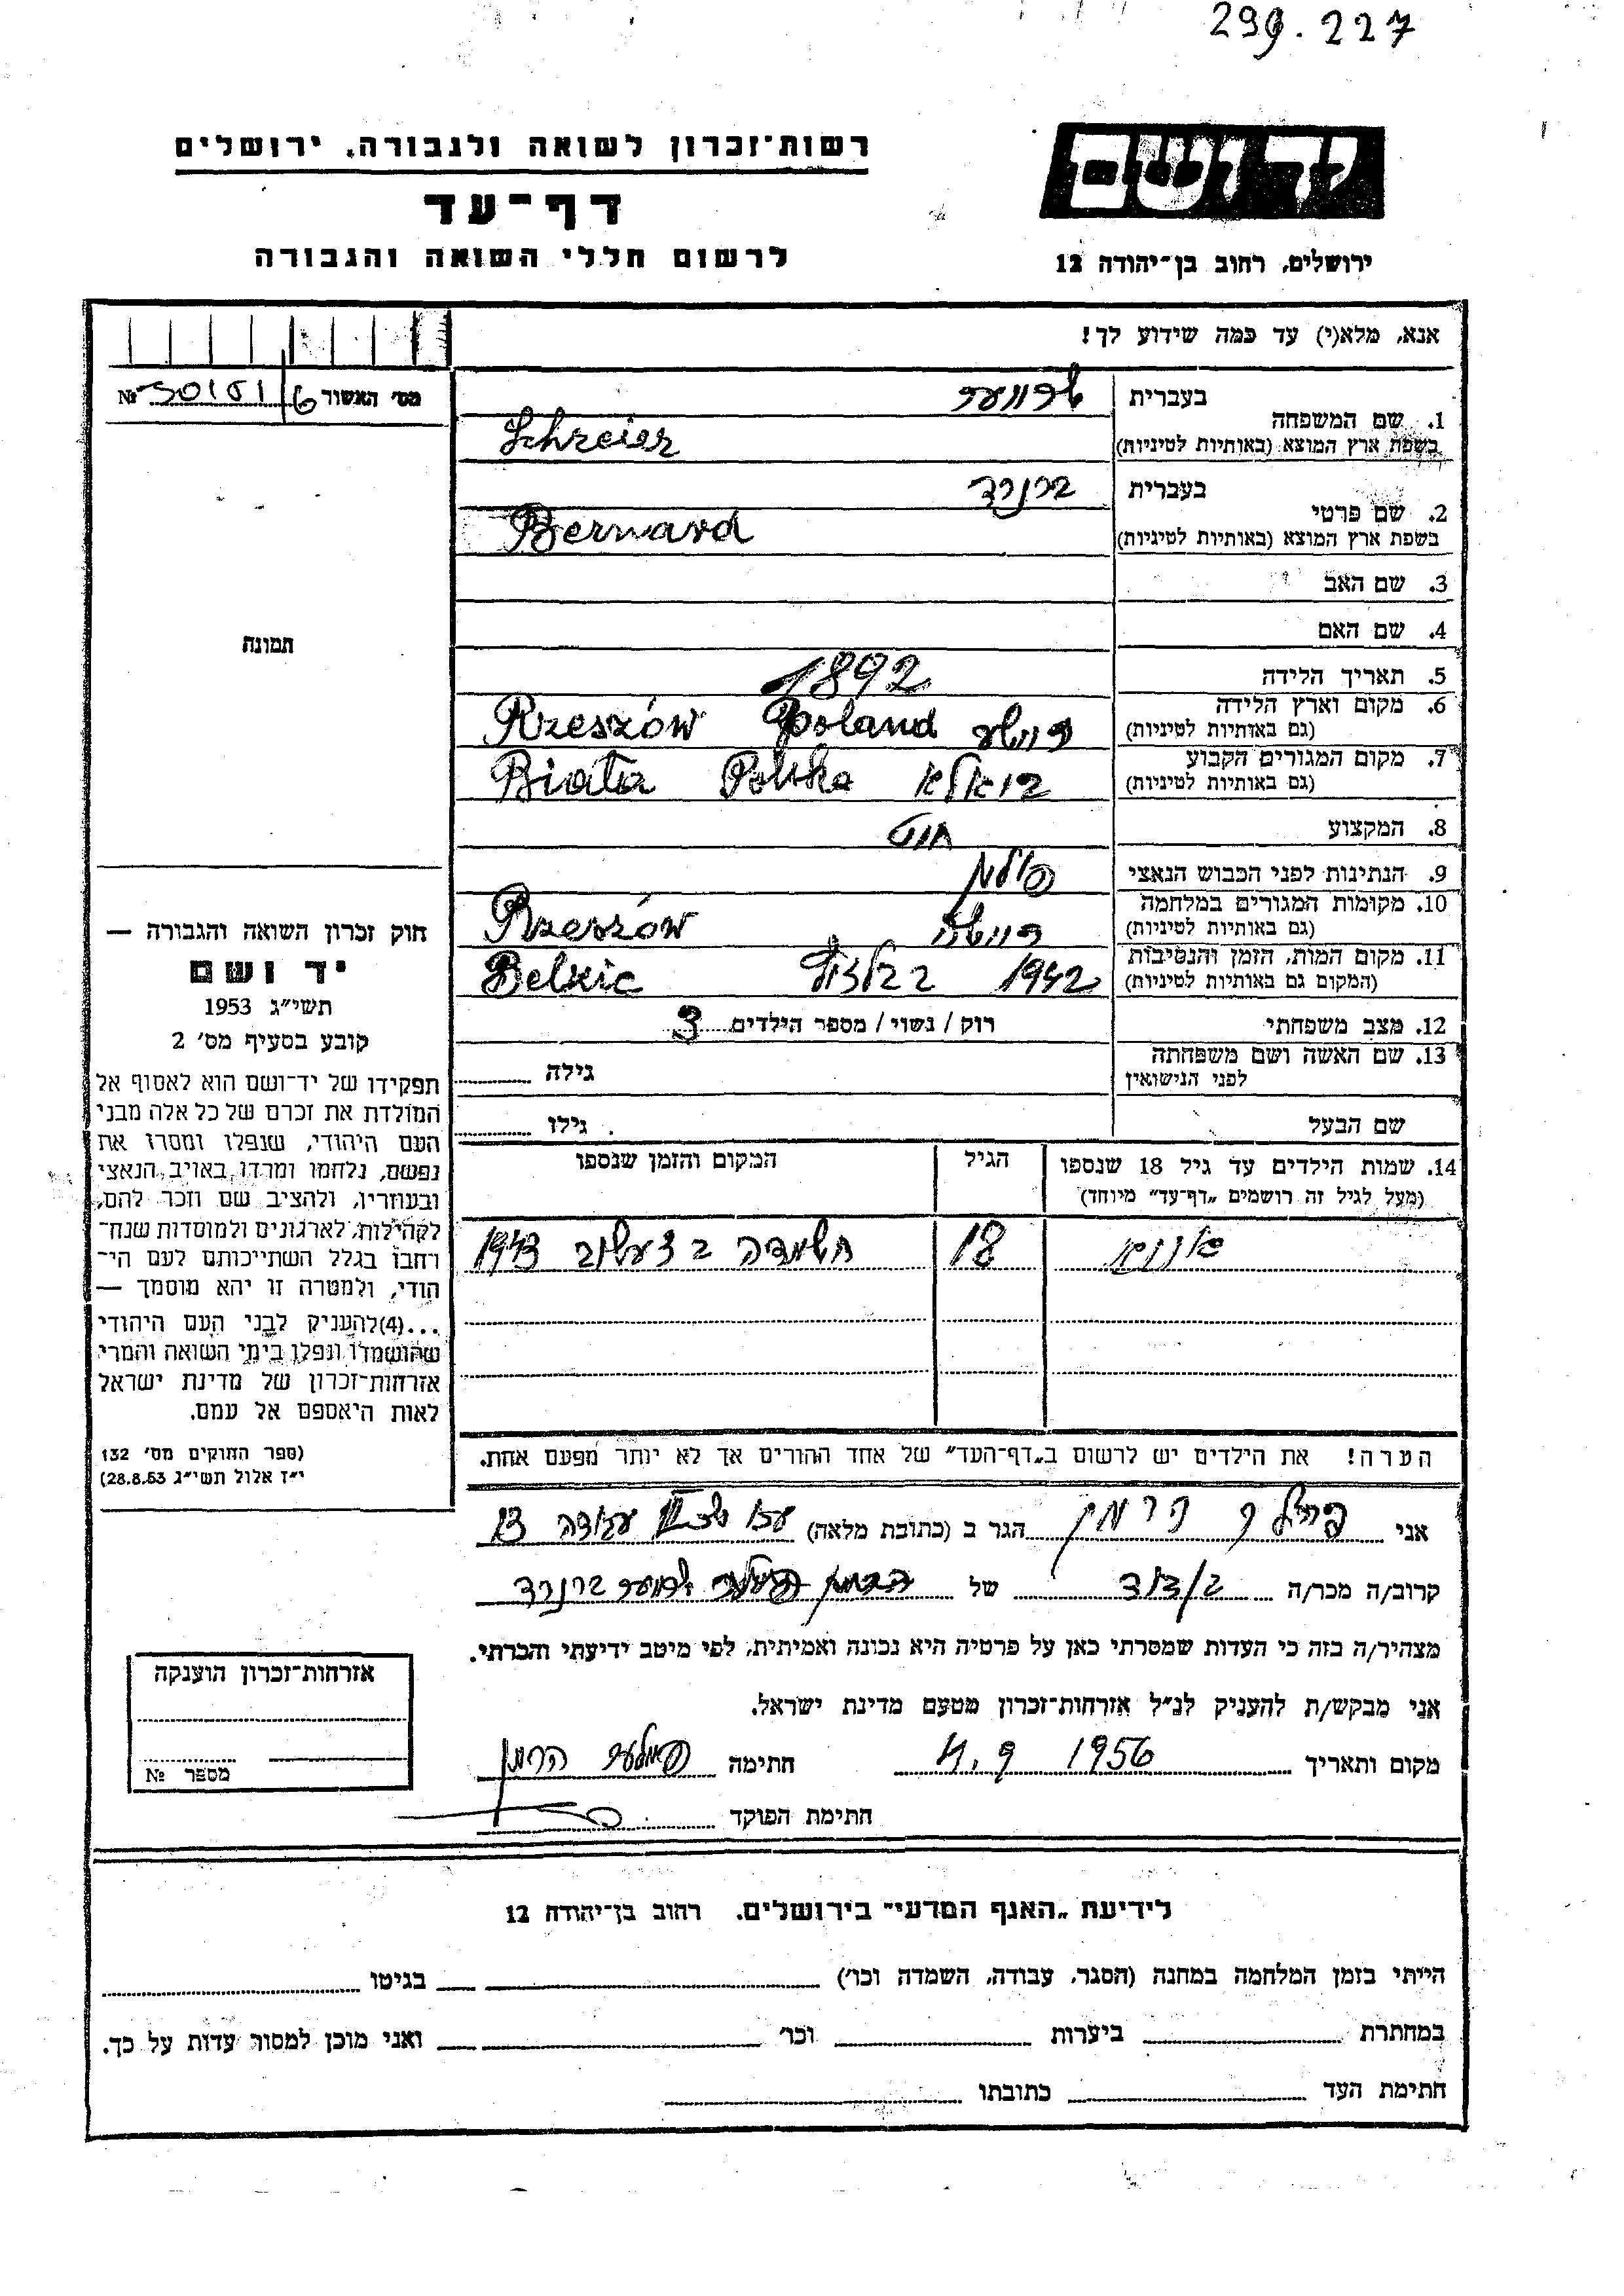 299.227
יד ושם
רשות־זכרון לשואה ולגבורה, ירושלים
דף־עד
לרשום חללי השואה והגבורה
ירושלים, רחוב בן־יהודה 12
אנא, מלא(י) עד כמה שידוע לך!
מס' האשור
№
בעברית
1. שם המשפחה
בשפת ארץ המוצא (באותיות לטיניות)
Schreier
בעברית ברנרד
2. שם פרטי
בשפת ארץ המוצא (באותיות לטיניות)
Bernard
3. שם האב
4. שם האם
תמונה
5. תאריך הלידה 1892
6. מקום וארץ הלידה
(גם באותיות לטיניות)
Rzeszów Poland
7. מקום המגורים הקבוע
(גם באותיות לטיניות)
Biała Polska ביאלא
8. המקצוע
9. הנתינות לפני הכבוש הנאצי
10. מקומות המגורים במלחמה
(גם באותיות לטיניות)
Rzeszów
11. מקום המות, הזמן והנסיבות
(המקום גם באותיות לטיניות)
1942 בבלזיץ Belzic
12. מצב משפחתי רוק / נשוי / מספר הילדים 3
13. שם האשה ושם משפחתה
לפני הנישואין
גילה
שם הבעל גילו
14. שמות הילדים עד גיל 18 שנספו
(מעל לגיל זה רושמים „דף־עד" מיוחד)
הגיל
המקום והזמן שנספו
18
1943
הערה! את הילדים יש לרשום ב„דף־העד" של אחד ההורים אך לא יותר מפעם אחת.
חוק זכרון השואה והגבורה —
יד ושם
תשי"ג 1953
קובע בסעיף מס' 2
תפקידו של יד־ושם הוא לאסוף אל
המולדת את זכרם של כל אלה מבני
העם היהודי, שנפלו ומסרו את
נפשם, נלחמו ומרדו באויב הנאצי
ובעוזריו, ולהציב שם וזכר להם,
לקהילות, לארגונים ולמוסדות שנח־
רחבו בגלל השתייכותם לעם הי־
הודי, ולמטרה זו יהא מוסמך —
...(4)להעניק לבני העם היהודי
שהושמדו ונפלו בימי השואה והמרי
אזרחות־זכרון של מדינת ישראל
לאות היאספם אל עמם.
(ספר החוקים מס' 132
י"ז אלול תשי"ג 28.8.53)
אני הגר ב (כתובת מלאה)
קרוב/ה מכר/ה של ברנרד
מצהיר/ה בזה כי העדות שמסרתי כאן על פרטיה היא נכונה ואמיתית, לפי מיטב ידיעתי והכרתי.
אני מבקש/ת להעניק לנ"ל אזרחות־זכרון מטעם מדינת ישראל.
מקום ותאריך 1956 חתימה
חתימת הפוקד
אזרחות־זכרון הוענקה
מספר №
לידיעת „האגף המדעי" בירושלים, רחוב בן־יהודה 12
הייתי בזמן המלחמה במחנה (הסגר, עבודה, השמדה וכו') בגיטו
במחתרת ביערות וכו' ואני מוכן למסור עדות על כך.
חתימת העד כתובתו